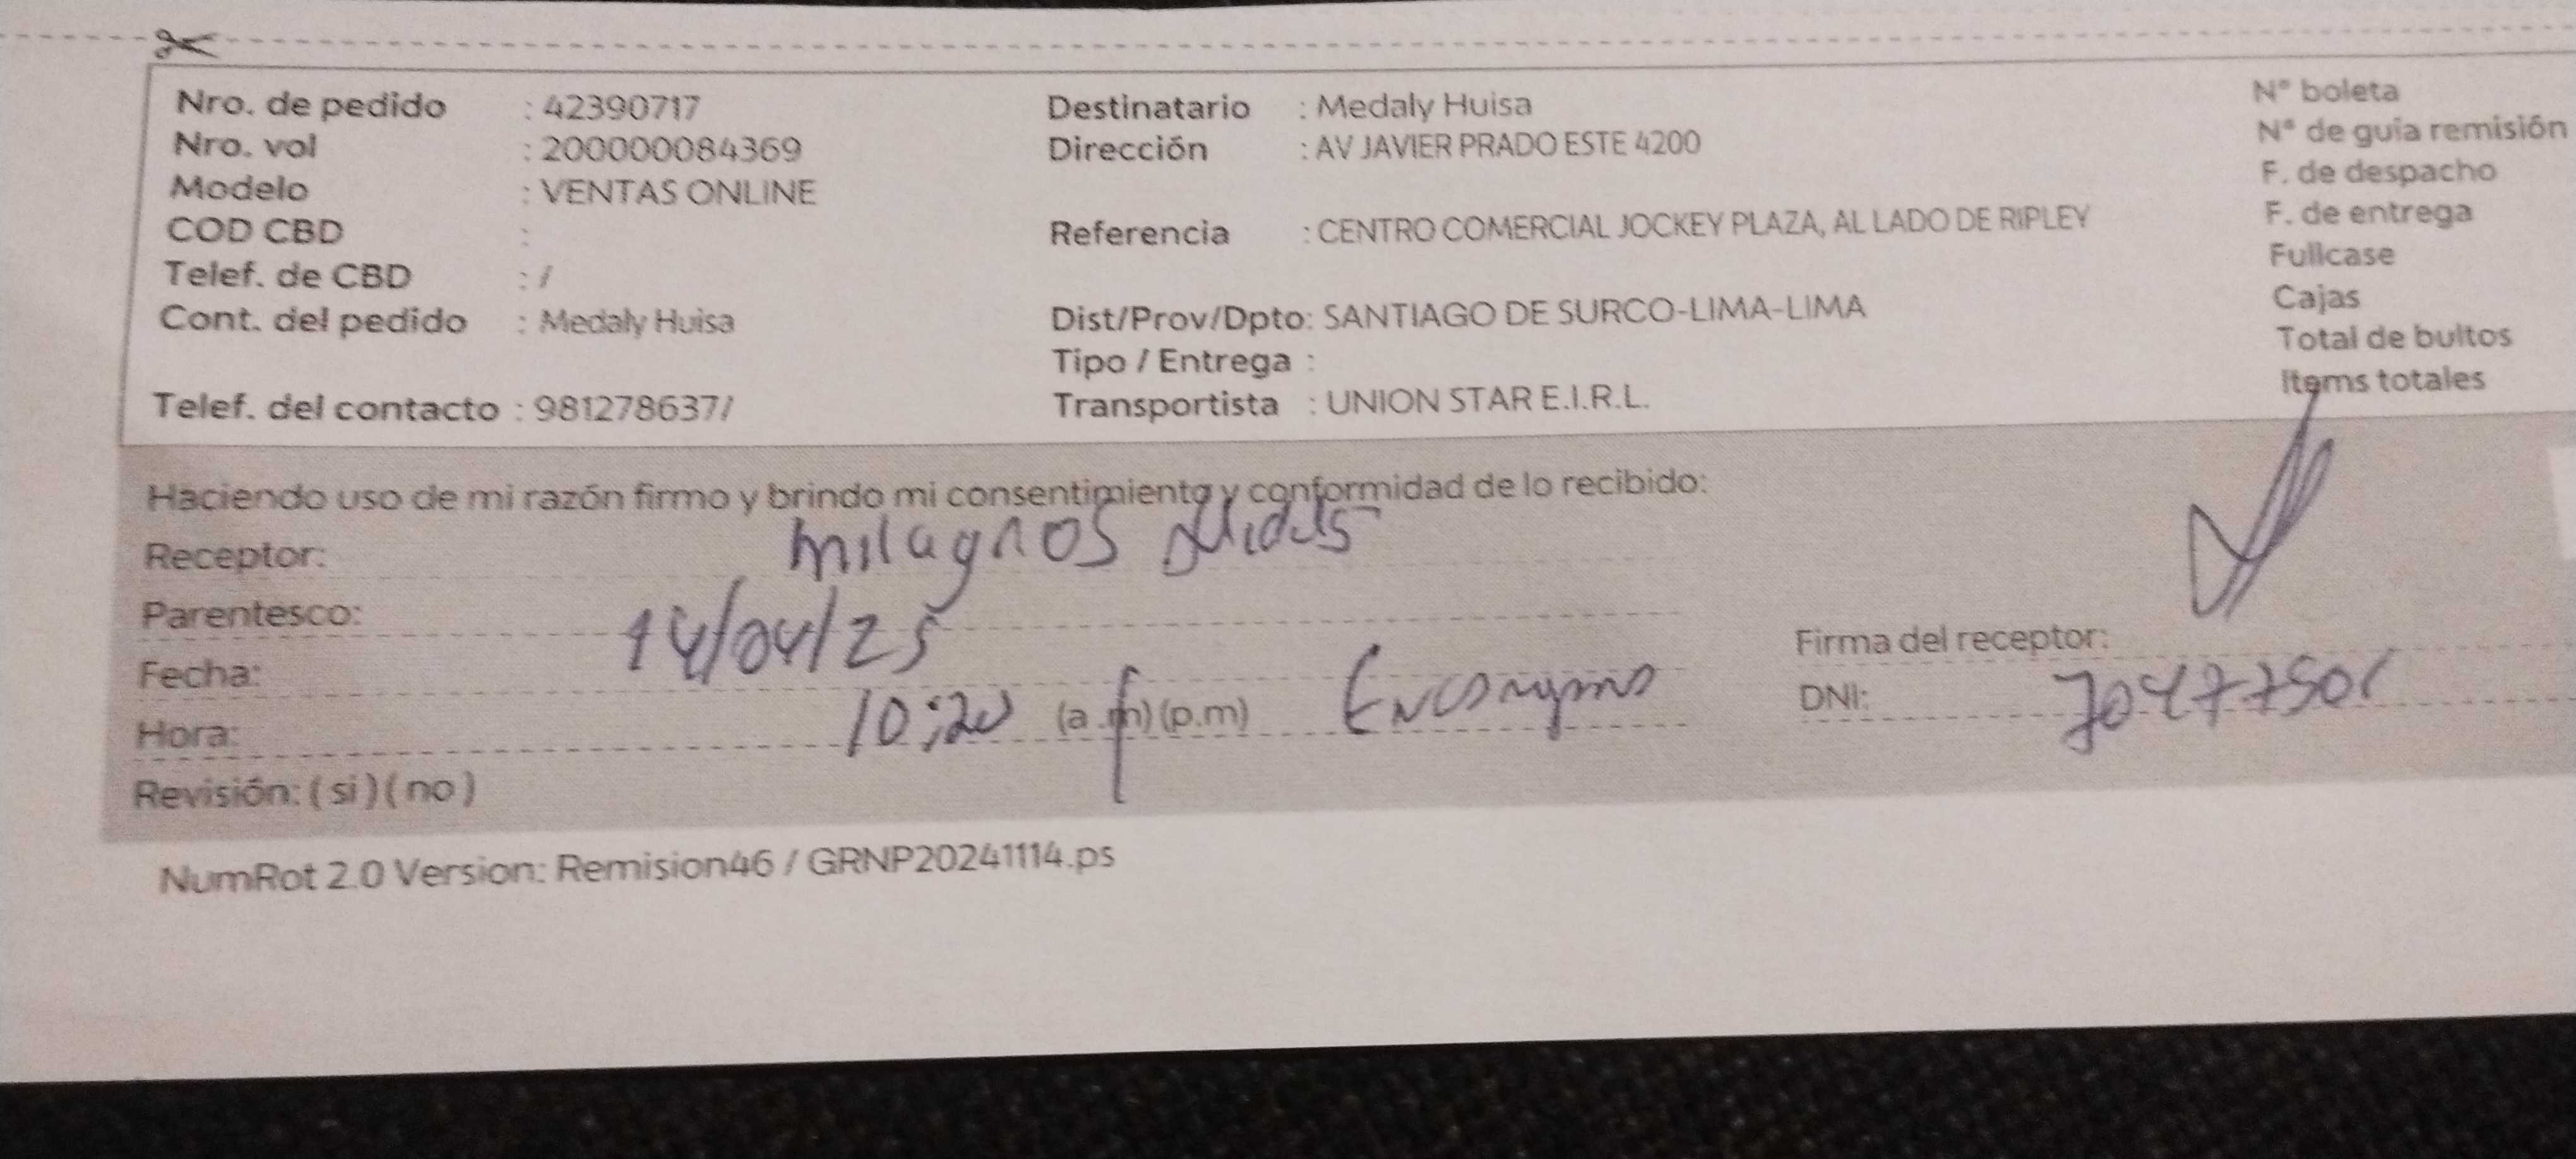 Nro. de pedido : 42390717
Nro. vol : 200000084369
Modelo : VENTAS ONLINE
COD CBD :
Telef. de CBD : /
Cont. del pedido : Medaly Huisa
Telef. del contacto : 981278637/
Destinatario : Medaly Huisa
Dirección : AV JAVIER PRADO ESTE 4200
Referencia : CENTRO COMERCIAL JOCKEY PLAZA, AL LADO DE RIPLEY
Dist/Prov/Dpto: SANTIAGO DE SURCO-LIMA-LIMA
Tipo / Entrega :
Transportista : UNION STAR E.I.R.L.
N° boleta
N° de guía remisión
F. de despacho
F. de entrega
Fullcase
Cajas
Total de bultos
Items totales
Haciendo uso de mi razón firmo y brindo mi consentimiento y conformidad de lo recibido:
Receptor: milagros
Parentesco:
Fecha: 14/04/25
Hora: 10:20 (a .m) (p.m)
Revisión: ( si ) ( no )
Firma del receptor:
DNI:
NumRot 2.0 Version: Remision46 / GRNP20241114.ps